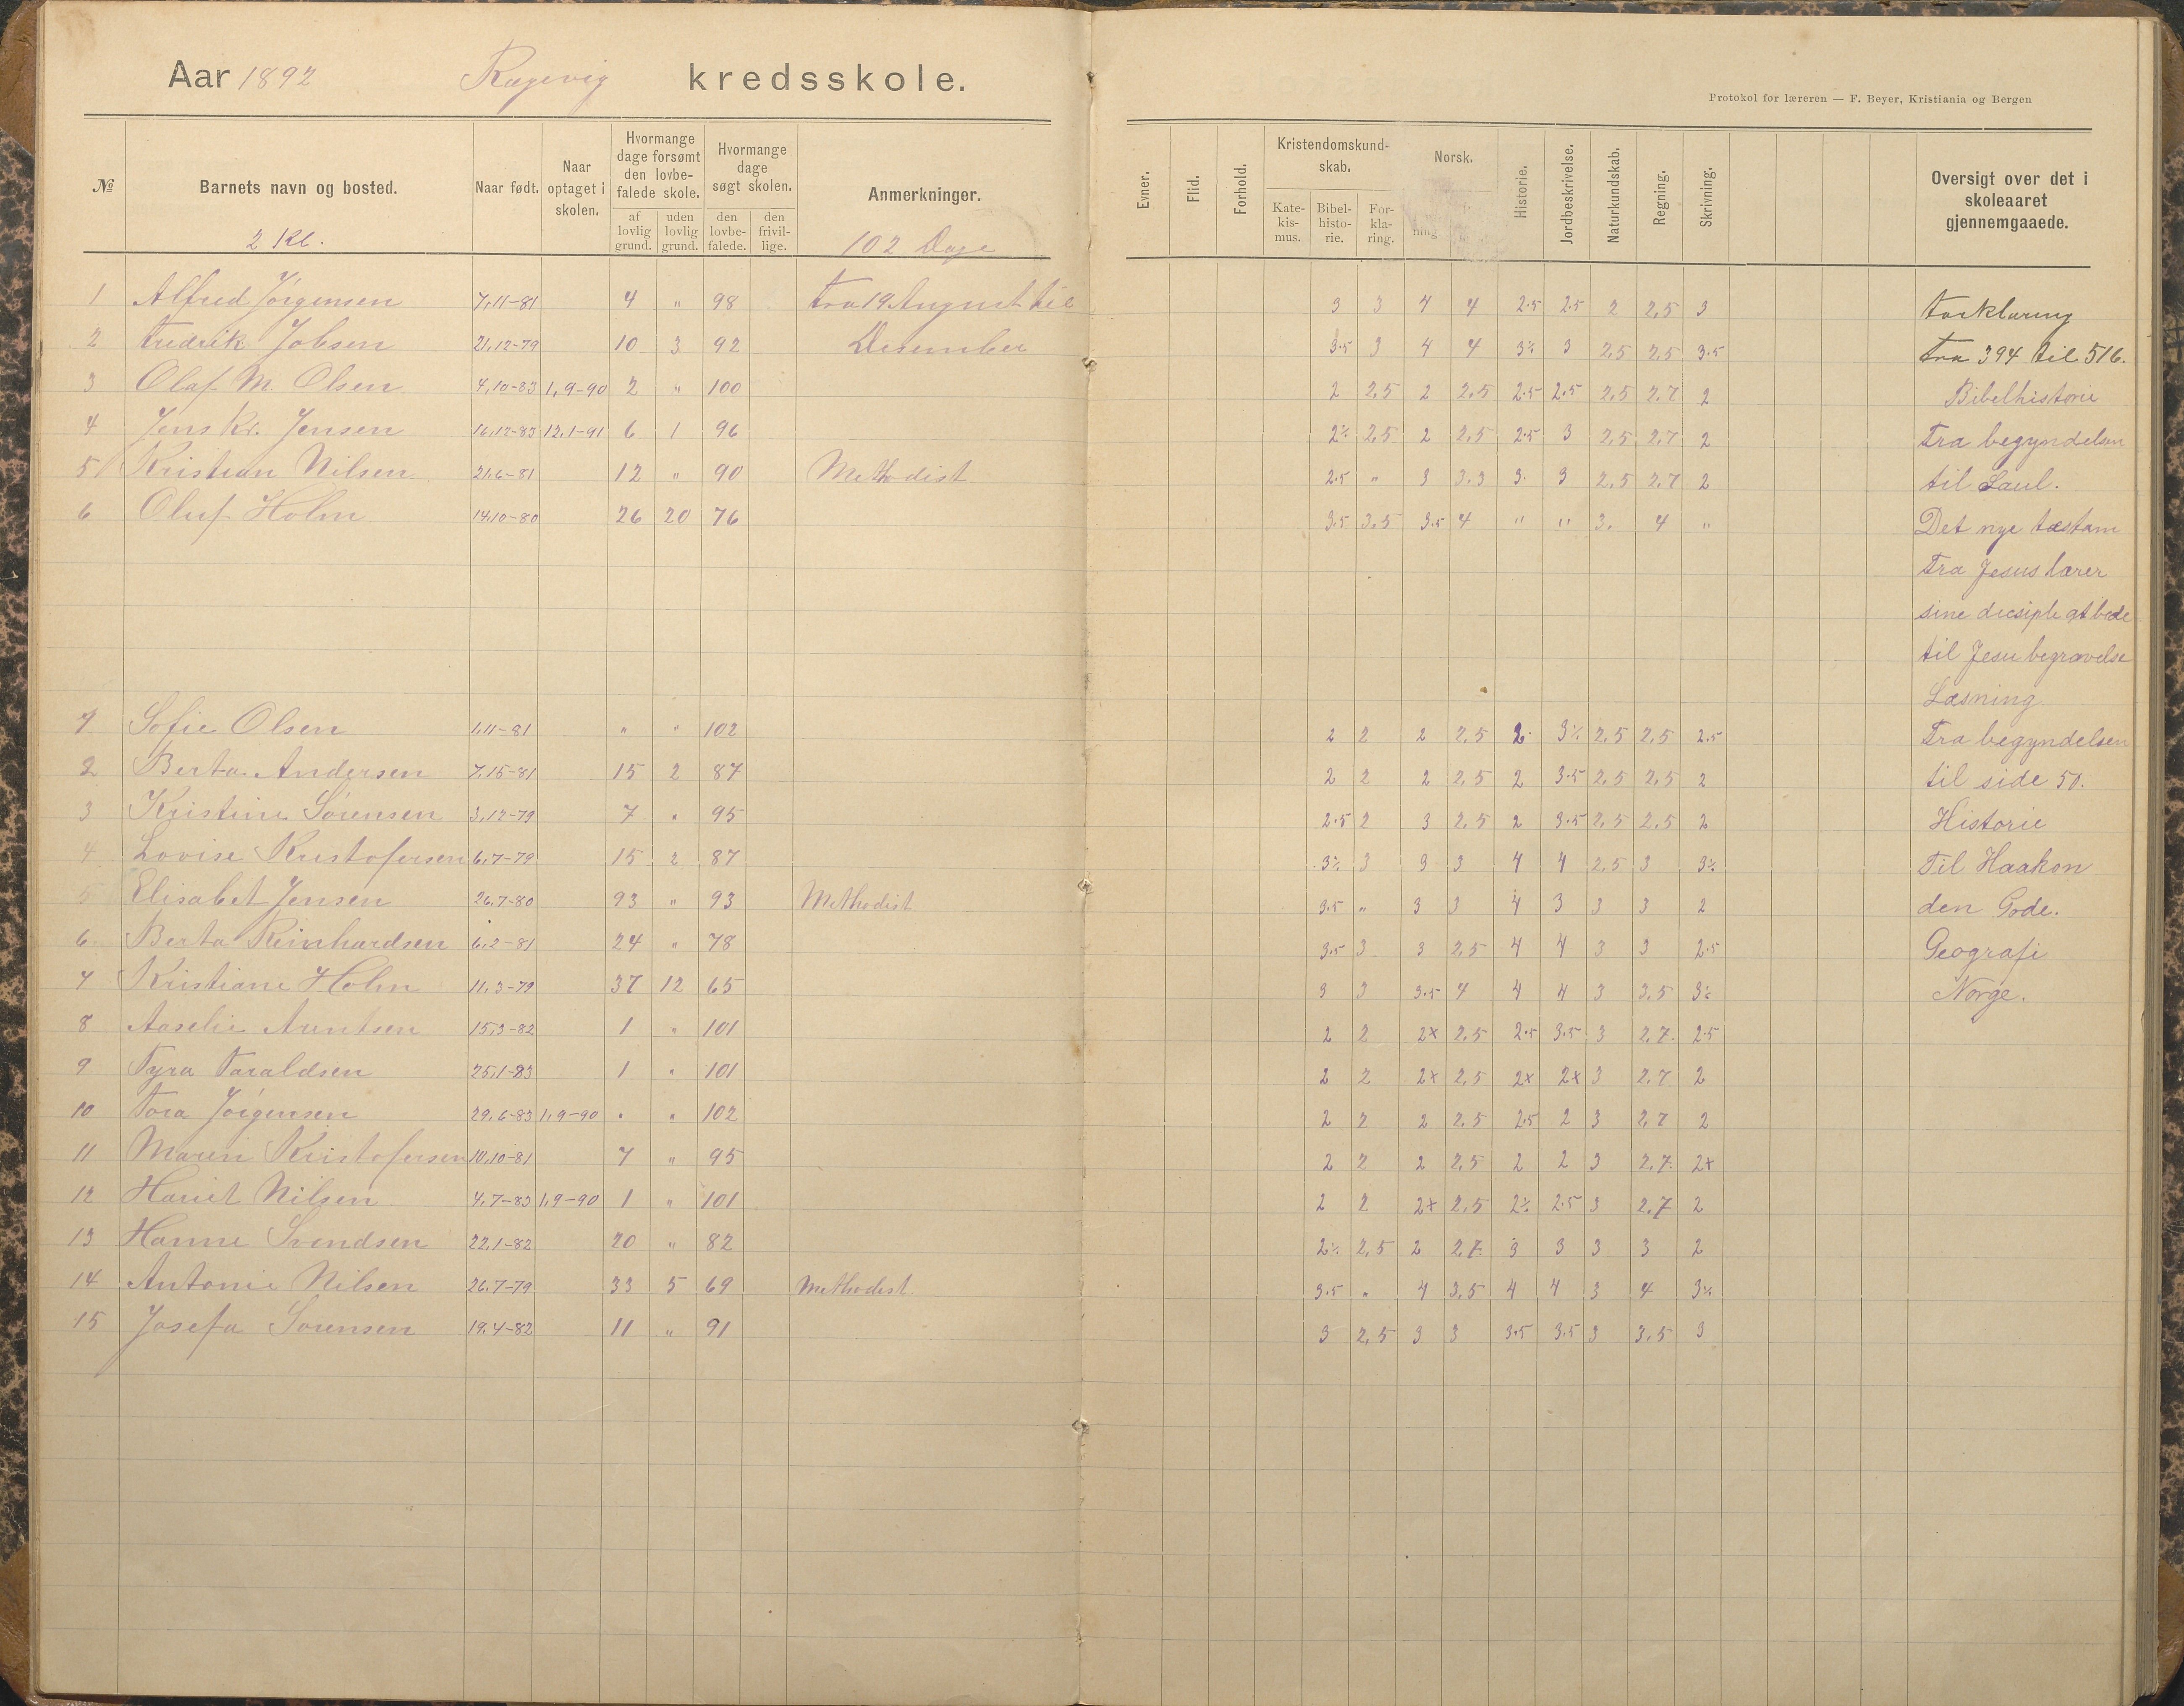 Aar 1892 Rægevig kredsskole.
Protokol for læreren — F. Beyer, Kristiania og Bergen
№ Barnets navn og bosted. Naar født. Naar optaget i skolen. Hvormange dage forsømt den lovbe-falede skole. af lovlig grund. uden lovlig grund. Hvormange dage søgt skolen. den lovbe-falede. den frivil-lige. Anmerkninger. Evner. Flid. Forhold. Kristendomskund-skab. Kate-kis-mus. Bibel-histo-rie. For-kla-ring. Norsk. Historie. Jordbeskrivelse. Naturkundskab. Regning. Skrivning. Oversigt over det i skoleaaret gjennemgaaede.
2 Kl. 102 Dage
1 Alfred Jørgensen 7,11-81 4 " 98 Fra 19 August til 3 3 4 4 2.5 2.5 2 2,5 3 Forklaring
2 Fredrik Jobsen 21,12-79 10 3 92 Desember 3.5 3 4 4 3½ 3 2,5 2,5 3.5 Fra 394 til 516.
3 Olaf M. Olsen 4,10-83 1,9-90 2 " 100 2 2,5 2 2,5 2.5 2.5 2,5 2,7 2 Bibelhistorie
4 Jens Kr. Jensen 16,12-83 12,1-91 6 1 96 2½ 2,5 2 2,5 2.5 3 2,5 2,7 2 Fra begyndelsen
5 Kristian Nilsen 21,6-81 12 " 90 Methodist 2.5 " 3 3.3 3. 3 2,5 2,7 2 til Saul.
6 Oluf Holm 14,10-80 26 20 76 3.5 3,5 3.5 4 " " 3. 4 " Det nye tæstam
Fra Jesus lærer
sine decsiple at bede
til Jesu begravelse
Læsning
1 Sofie Olsen 1,11-81 " " 102 2 2 2 2,5 2. 3½ 2,5 2,5 2.5 Fra begyndelsen
2 Berta Andersen 7,15-81 15 2 87 2 2 2 2,5 2 3.5 2,5 2,5 2 til side 50.
3 Kristine Sørensen 3,12-79 7 " 95 2.5 2 3 2,5 2 3.5 2,5 2,5 2 Historie
4 Lovise Kristofersen 6,7-79 15 2 87 3½ 3 3 3 4 4 2,5 3 3½ Til Haakon
5 Elisabet Jensen 26,7-80 93 " 93 Methodist 3.5 " 3 3 4 3 3 3 2 den Gode.
6 Berta Reinhardsen 6,2-81 24 " 78 3.5 3 3 2,5 4 4 3 3 2.5 Geografi
7 Kristiane Holm 11,3-79 37 12 65 3 3 3.5 4 4 4 3 3,5 3½ Norge.
8 Aaselie Arntsen 15,3-82 1 " 101 2 2 2× 2,5 2.5 3.5 3 2,7. 2.5
9 Tyra Taraldsen 25,1-83 1 " 101 2 2 2× 2,5 2× 2× 3 2,7 2
10 Tora Jørgensen 29,6-83 1,9-90 " " 102 2 2 2 2,5 2.5 2 3 2,7 2
11 Maren Kristofersen 10,10-81 7 " 95 2 2 2 2,5 2 2 3 2,7. 2×
12 Hariet Nilsen 4,7-83 1,9-90 1 " 101 2 2 2× 2,5 2½ 2.5 3 2,7 2
13 Hanne Svendsen 22,1-82 20 " 82 2½ 2,5 2 2,7. 3 3 3 3 2
14 Antonie Nilsen 26,7-79 33 5 69 Methodist 3.5 " 4 3,5 4 4 3 4 3½
15 Josefa Sørensen 19,4-82 11 " 91 3 2,5 3 3 3.5 3.5 3 3,5 3